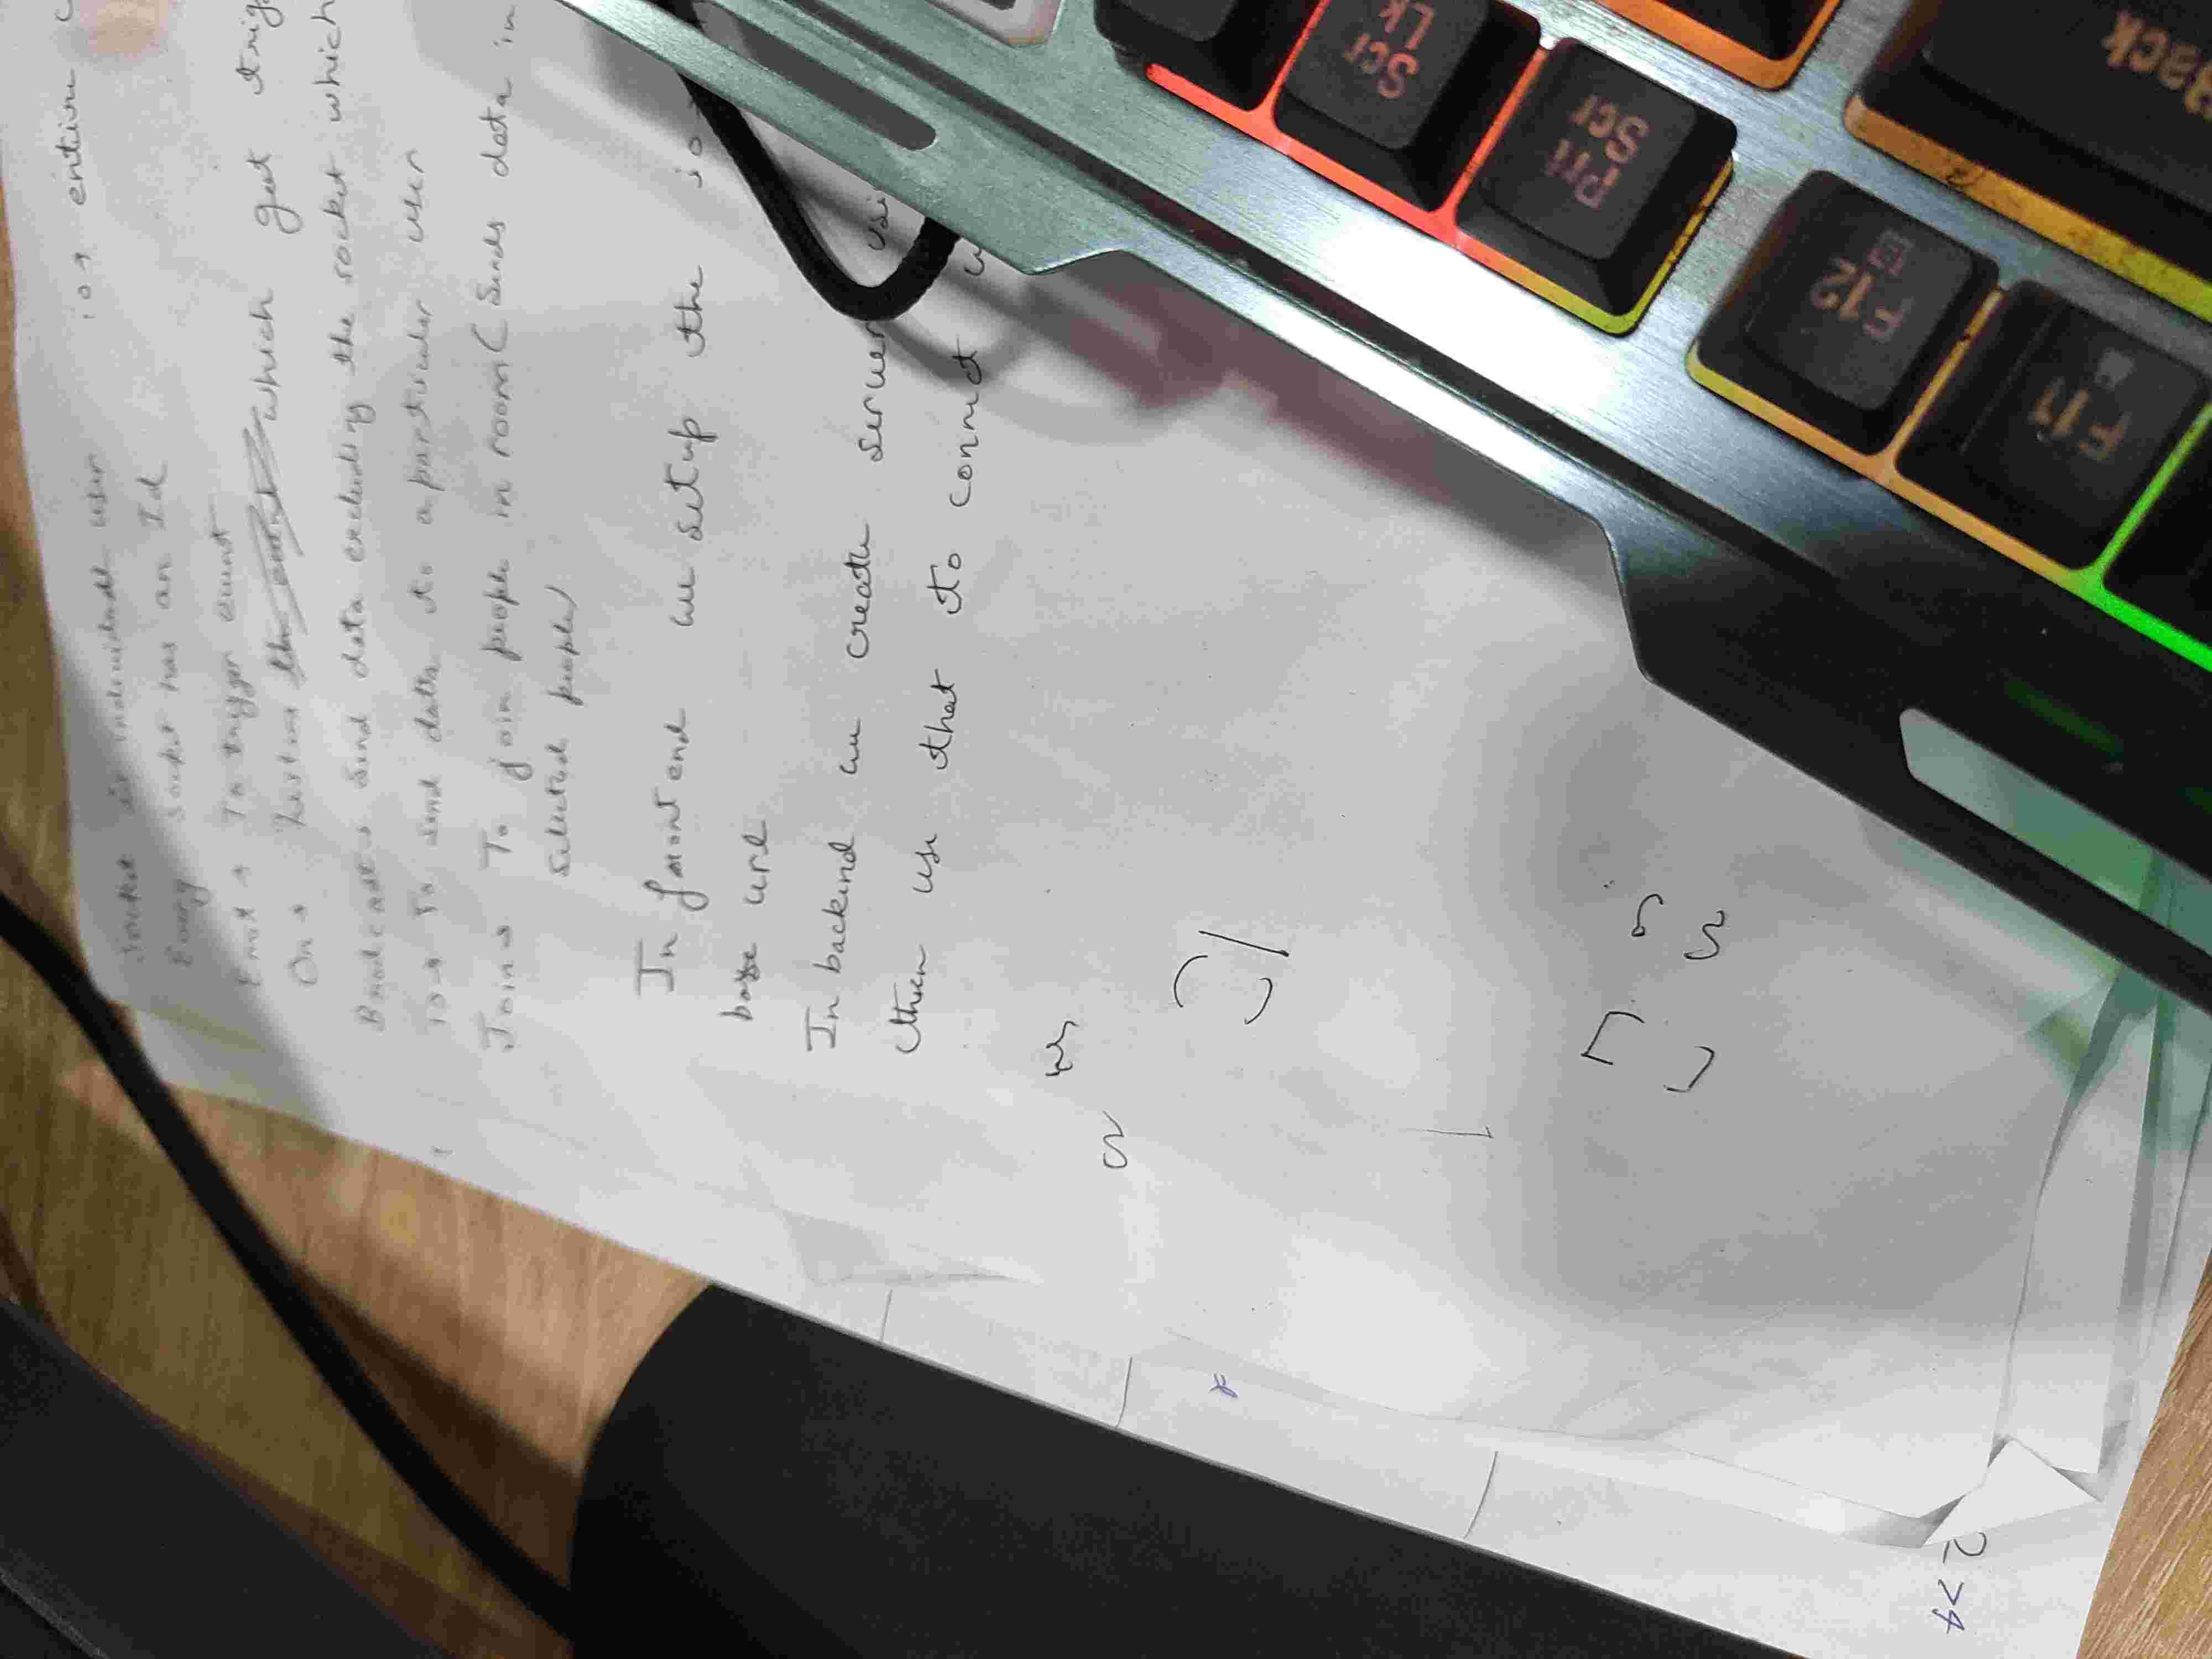 io → entire
Socket is individual user
Every socket has an Id
Emit → To trigger event
On → Listen the event which get trig
Broadcast → Send data excluding the socket which
To → To send data to a particular user
Join → To join people in room (Sends data in
selected people)
In frontend we setup the io
base url
In backend we create server usi
then use that to connect
[ ]
F11
F12
Prt
Scr
Scr
Lk
Back